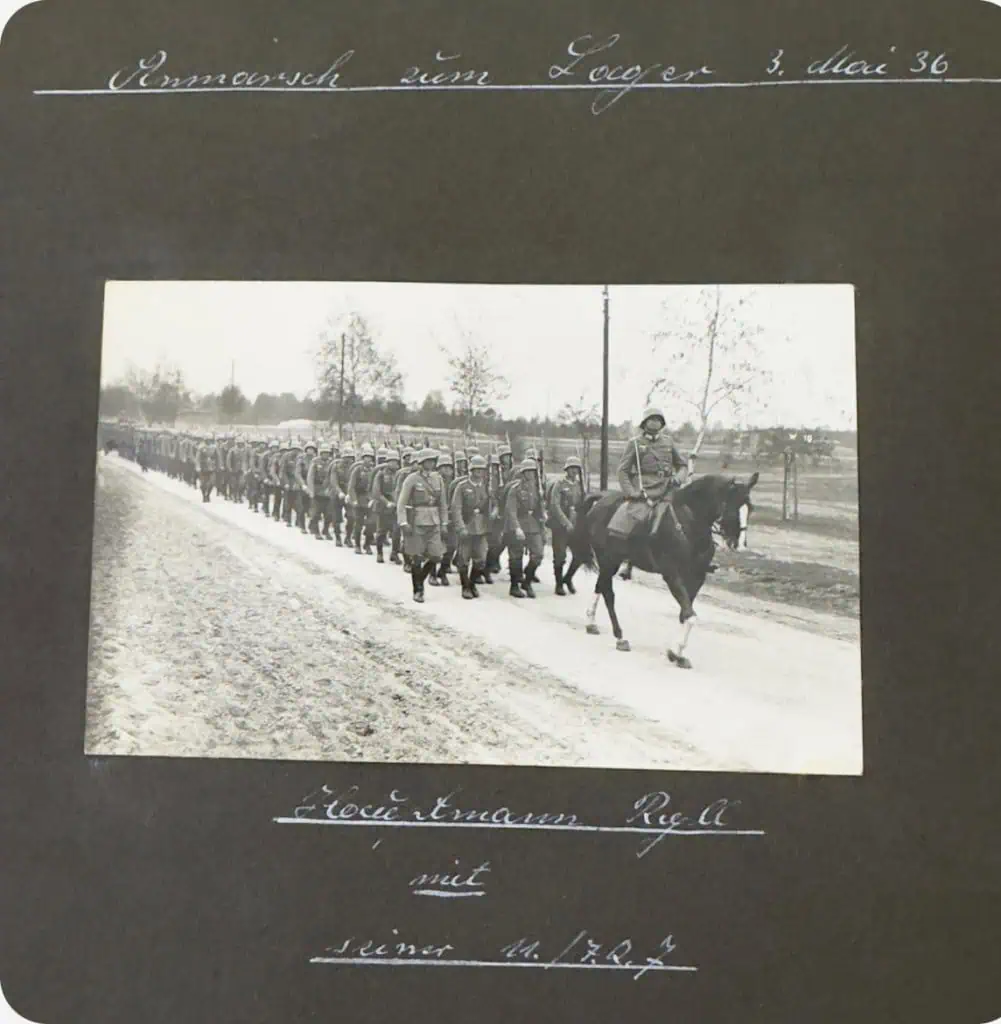 Anmarsch zum Lager 3. Mai 36
Hauptmann
mit
seiner 11./I.R. 7